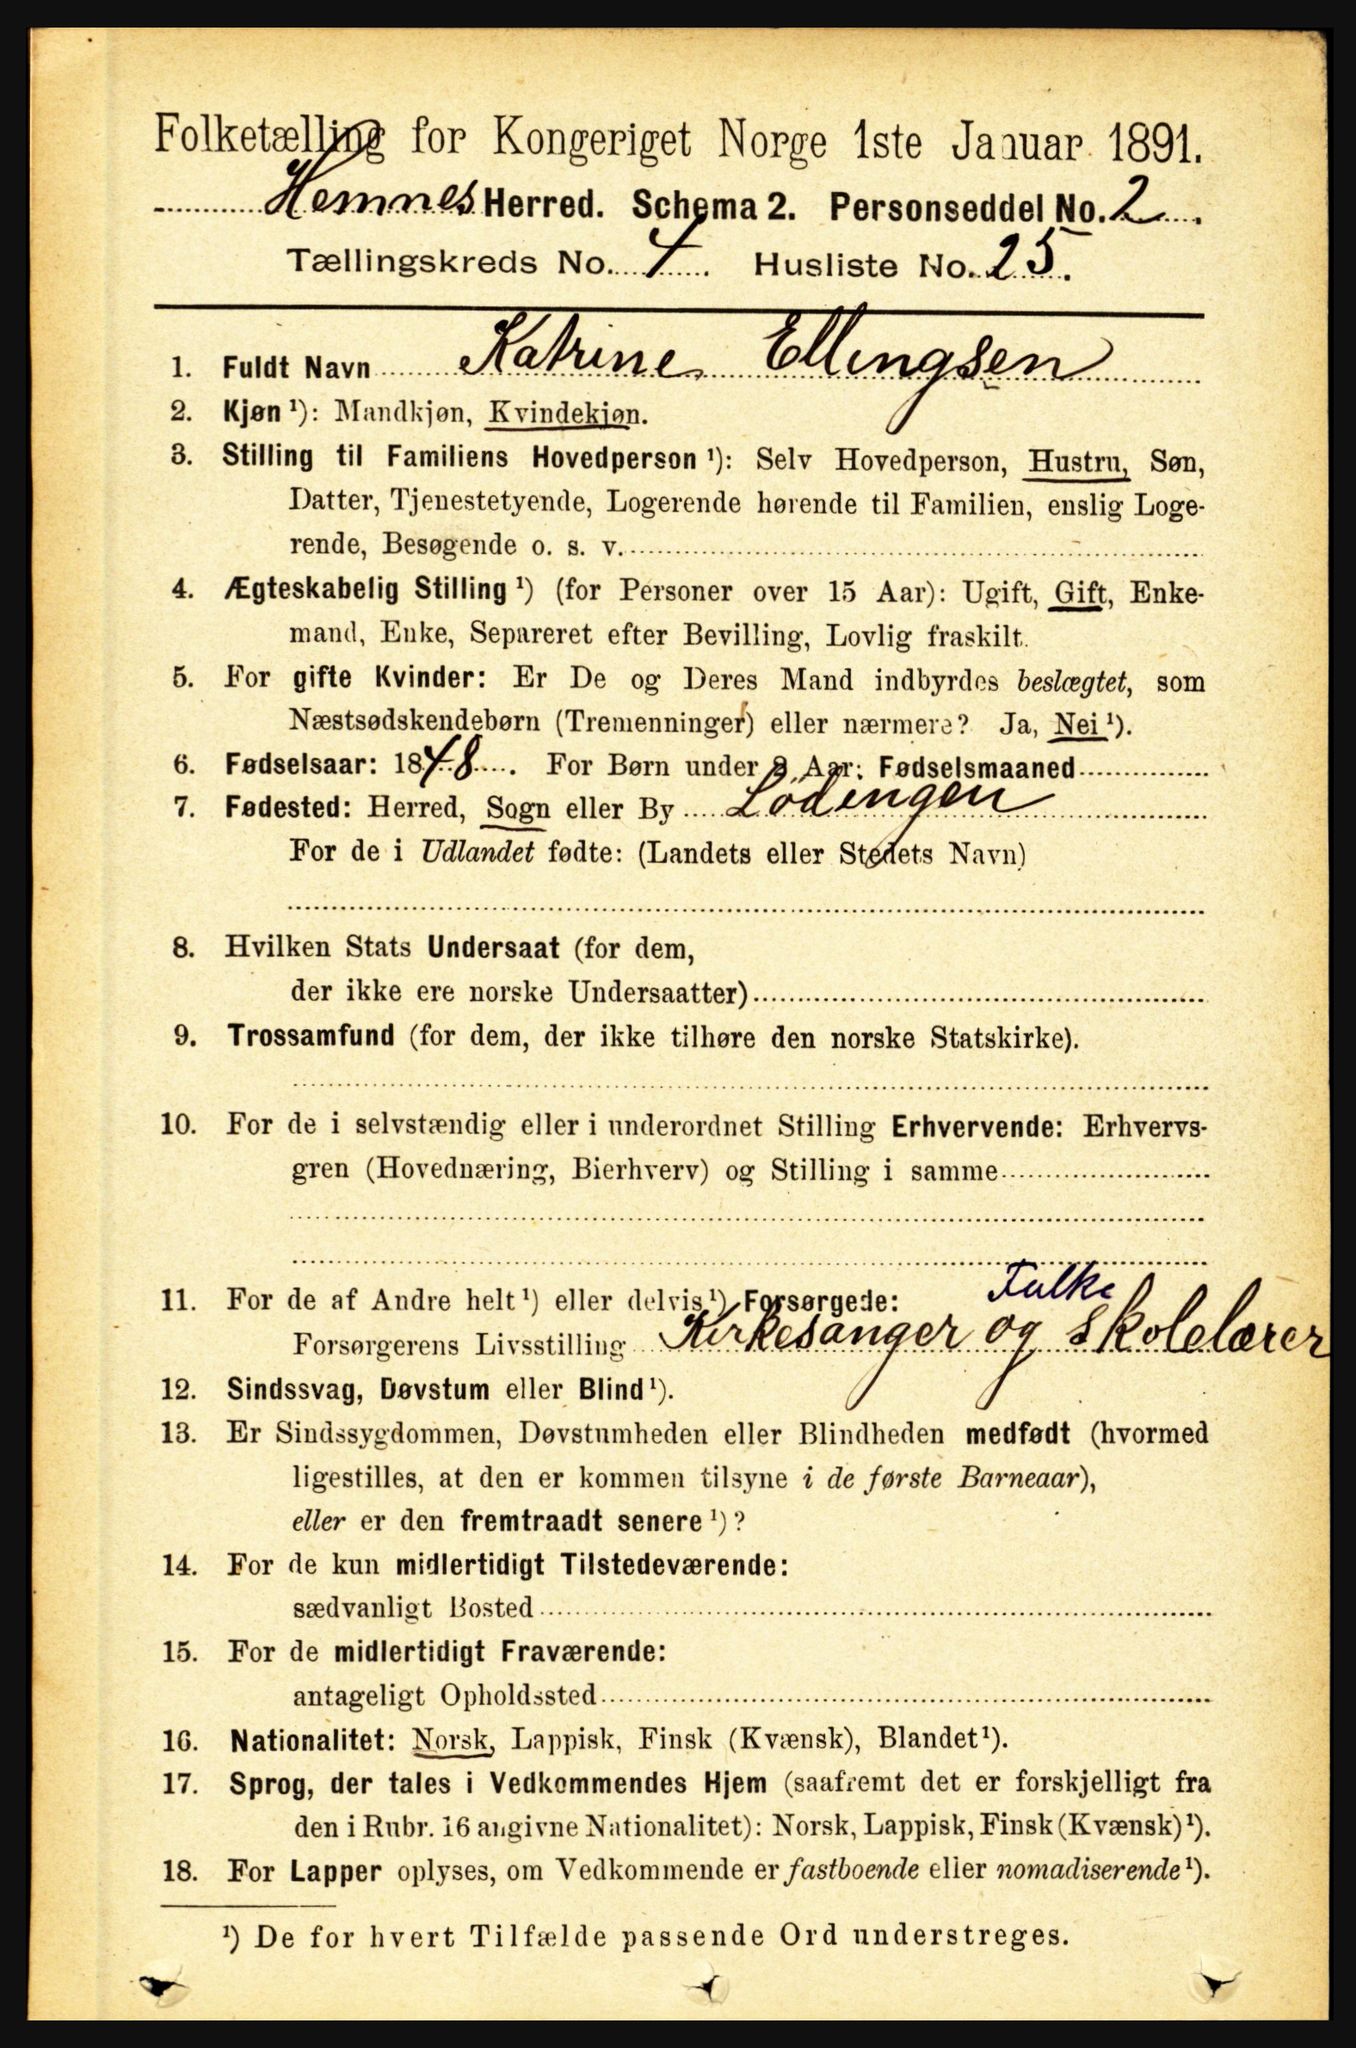 Folketælling for Kongeriget Norge 1ste Januar 1891.
Hemnes Herred. Schema 2. Personseddel No. 2.
Tællingskreds No. 4. Husliste No. 25.
1. Fuldt Navn Katrine Ellingsen
2. Kjøn ¹): Mandkjøn, Kvindekjøn.
3. Stilling til Familiens Hovedperson ¹): Selv Hovedperson, Hustru, Søn,
Datter, Tjenestetyende, Logerende hørende til Familien, enslig Loge-
rende, Besøgende o. s. v.
4. Ægteskabelig Stilling ¹) (for Personer over 15 Aar): Ugift, Gift, Enke-
mand, Enke, Separeret efter Bevilling, Lovlig fraskilt.
5. For gifte Kvinder: Er De og Deres Mand indbyrdes beslægtet, som
Næstsødskendebørn (Tremenninger) eller nærmere? Ja, Nei ¹).
6. Fødselsaar: 1848. For Børn under 2 Aar: Fødselsmaaned
7. Fødested: Herred, Sogn eller By Lødingen
For de i Udlandet fødte: (Landets eller Stedets Navn)
8. Hvilken Stats Undersaat (for dem,
der ikke ere norske Undersaatter)
9. Trossamfund (for dem, der ikke tilhøre den norske Statskirke).
10. For de i selvstændig eller i underordnet Stilling Erhvervende: Erhvervs-
gren (Hovednæring, Bierhverv) og Stilling i samme
11. For de af Andre helt ¹) eller delvis ¹) Forsørgede: Folke
Forsørgerens Livsstilling Kirkesanger og skolelærer
12. Sindssvag, Døvstum eller Blind ¹).
13. Er Sindssygdommen, Døvstumheden eller Blindheden medfødt (hvormed
ligestilles, at den er kommen tilsyne i de første Barneaar),
eller er den fremtraadt senere ¹)?
14. For de kun midlertidigt Tilstedeværende:
sædvanligt Bosted
15. For de midlertidigt Fraværende:
antageligt Opholdssted
16. Nationalitet: Norsk, Lappisk, Finsk (Kvænsk), Blandet ¹).
17. Sprog, der tales i Vedkommendes Hjem (saafremt det er forskjelligt fra
den i Rubr. 16 angivne Nationalitet): Norsk, Lappisk, Finsk (Kvænsk) ¹).
18. For Lapper oplyses, om Vedkommende er fastboende eller nomadiserende ¹).
¹) De for hvert Tilfælde passende Ord understreges.